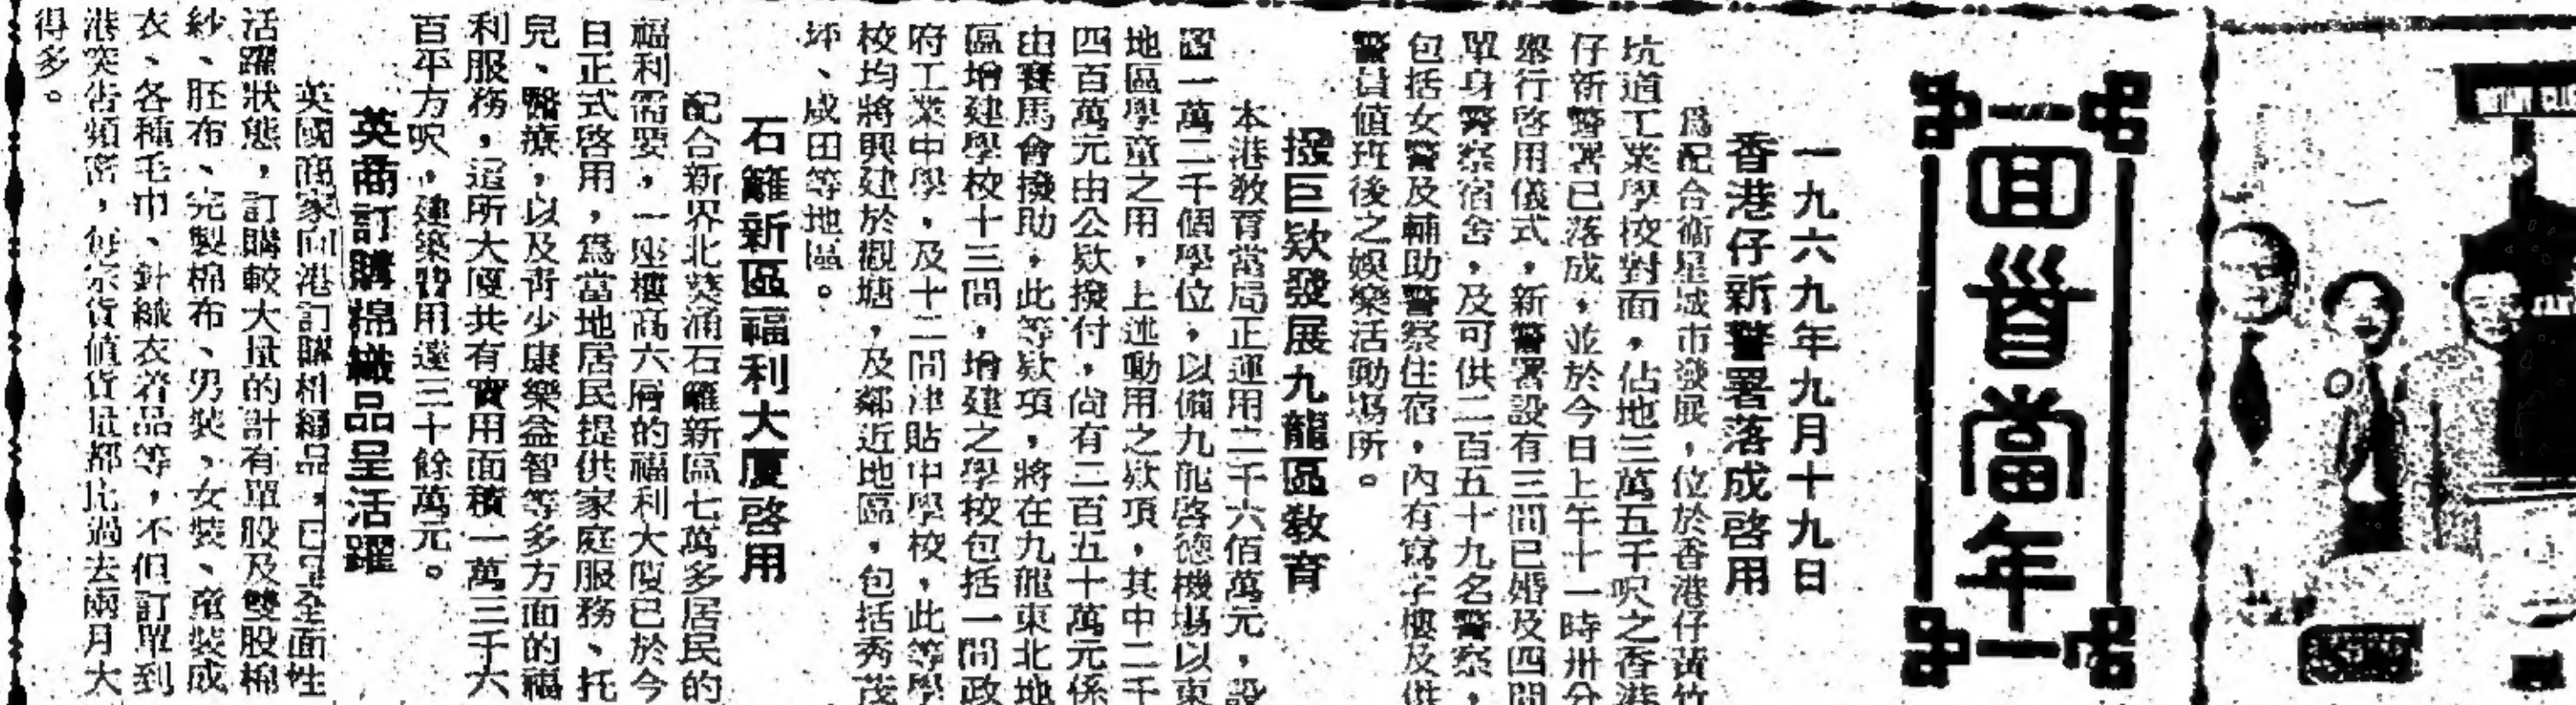 回首當年
一九六九年九月十九日
香港仔新警署落成啓用
爲配合衞星城市發展，位於香港仔黃竹
坑道工業學校對面，佔地三萬五千呎之香港
仔新警署已落成，並於今日上午十一時卅分
舉行啓用儀式，新警署設有三間已婚及四間
單身警察宿舍，及可供二百五十九名警察，
包括女警及輔助警察住宿，內有寫字樓及供
警員值班後之娛樂活動場所。
撥巨欵發展九龍區敎育
本港敎育當局正運用二千六佰萬元，設
置一萬二千個學位，以備九龍啓德機場以東
地區學童之用，上述動用之欵項，其中二千
四百萬元由公欵撥付，尚有二百五十萬元係
由賽馬會撥助，此等欵項，將在九龍東北地
區增建學校十三間，增建之學校包括一間政
府工業中學，及十二間津貼中學校，此等學
校均將興建於觀塘，及鄰近地區，包括秀茂
坪、咸田等地區。
石籬新區福利大廈啓用
配合新界北葵涌石籬新區七萬多居民的
福利需要，一座樓高六層的福利大廈已於今
日正式啓用，爲當地居民提供家庭服務、托
兒、醫療，以及靑少康樂益智等多方面的福
利服務，這所大廈共有實用面積一萬三千六
百平方呎，建築費用達三十餘萬元。
英商訂購棉織品呈活躍
英國商家向港訂購棉織品，已呈全面性
活躍狀態，訂購較大量的計有單股及雙股棉
紗、胚布、完製棉布、男裝、女裝、童裝成
衣、各種毛巾、針織衣着品等，不但訂單到
港突告頻密，每宗貨値貨量都比過去兩月大
得多。